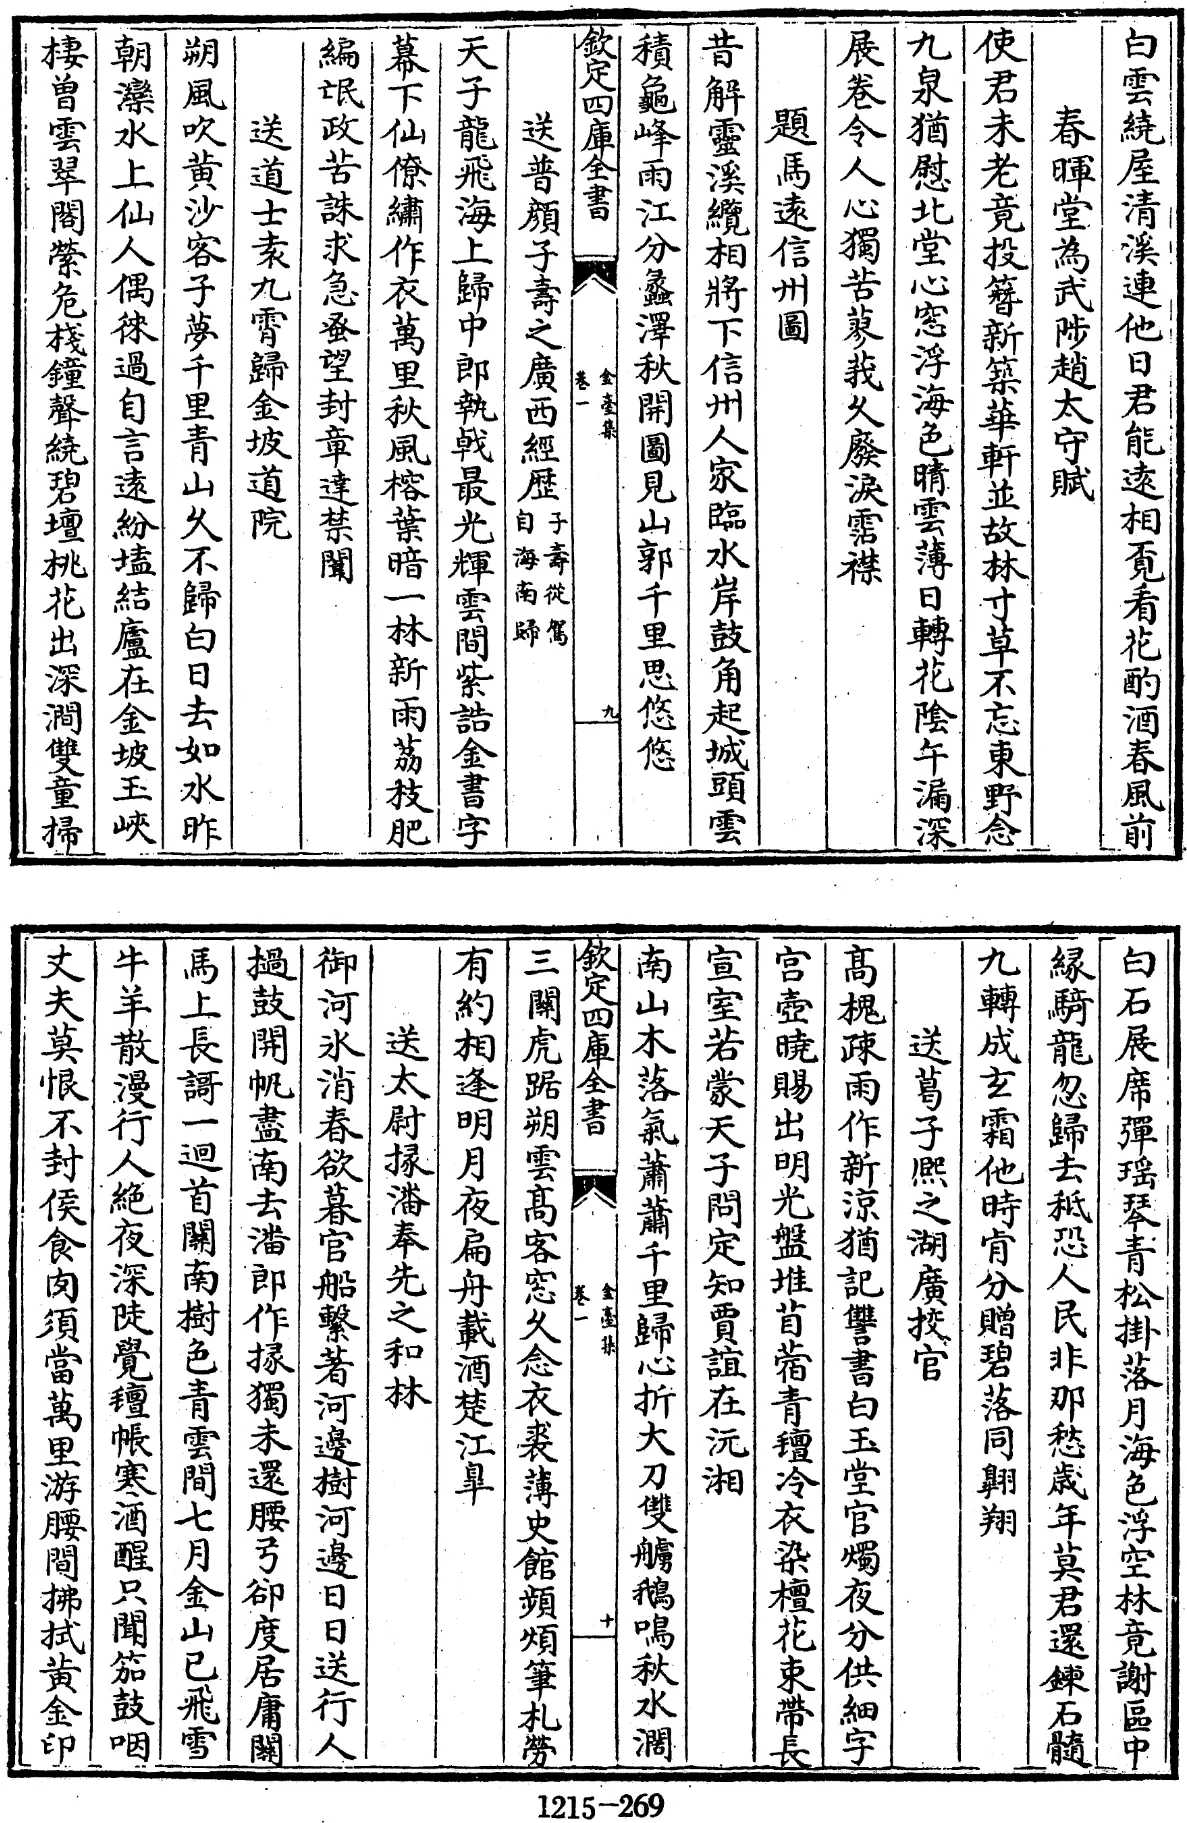 白雲繞屋清溪連他日君能遠相覓看花酌酒春風前
春暉堂為武陟趙太守賦
使君未老竟投簪新築華軒並故林寸草不忘東野念
九泉猶慰北堂心窓浮海色晴雲薄日轉花陰午漏深
展卷令人心獨苦蓼莪久廢淚霑襟
題馬遠信州圖
昔解靈溪纜相將下信州人家臨水岸鼓角起城頭雲
積龜峰雨江分蠡澤秋開圖見山郭千里思悠悠
欽定四庫全書
金臺集
卷一
九
送普顔子壽之廣西經歴子壽從駕
自海南歸
天子龍飛海上歸中郎執戟最光輝雲間紫誥金書字
幕下仙僚繡作衣萬里秋風榕葉暗一林新雨荔枝肥
編氓政苦誅求急蚤望封章達禁闈
送道士袁九霄歸金坡道院
朔風吹黄沙客子夢千里青山久不歸白日去如水昨
朝灤水上仙人偶徠過自言遠紛壒結廬在金坡玉峽
棲曾雲翠閣縈危棧鐘聲繞碧壇桃花出深澗雙童掃
白石展席彈瑶琴青松掛落月海色浮空林竟謝區中
緣騎龍忽歸去秪恐人民非那愁歳年莫君還鍊石髓
九轉成玄霜他時肯分贈碧落同翺翔
送葛子熙之湖廣挍官
髙槐疎雨作新涼猶記讐書白玉堂官燭夜分供細字
宫壺曉賜出明光盤堆苜蓿青氊冷衣染檀花束帶長
宣室若蒙天子問定知賈誼在沅湘
南山木落氣蕭蕭千里歸心折大刀雙艣鵝鳴秋水濶
欽定四庫全書
金臺集
卷一
十
三關虎踞朔雲髙客窓久念衣裘薄史館頻煩筆札勞
有約相逢明月夜扁舟載酒楚江臯
送太尉掾潘奉先之和林
御河氷消春欲暮官船繫著河邊樹河邊日日送行人
撾鼓開帆盡南去潘郎作掾獨未還腰弓卻度居庸關
馬上長謌一迴首關南樹色青雲間七月金山已飛雪
牛羊散漫行人絶夜深陡覺氊帳寒酒醒只聞笳鼓咽
丈夫莫恨不封侯食肉須當萬里游腰間拂拭黄金印
1215—269